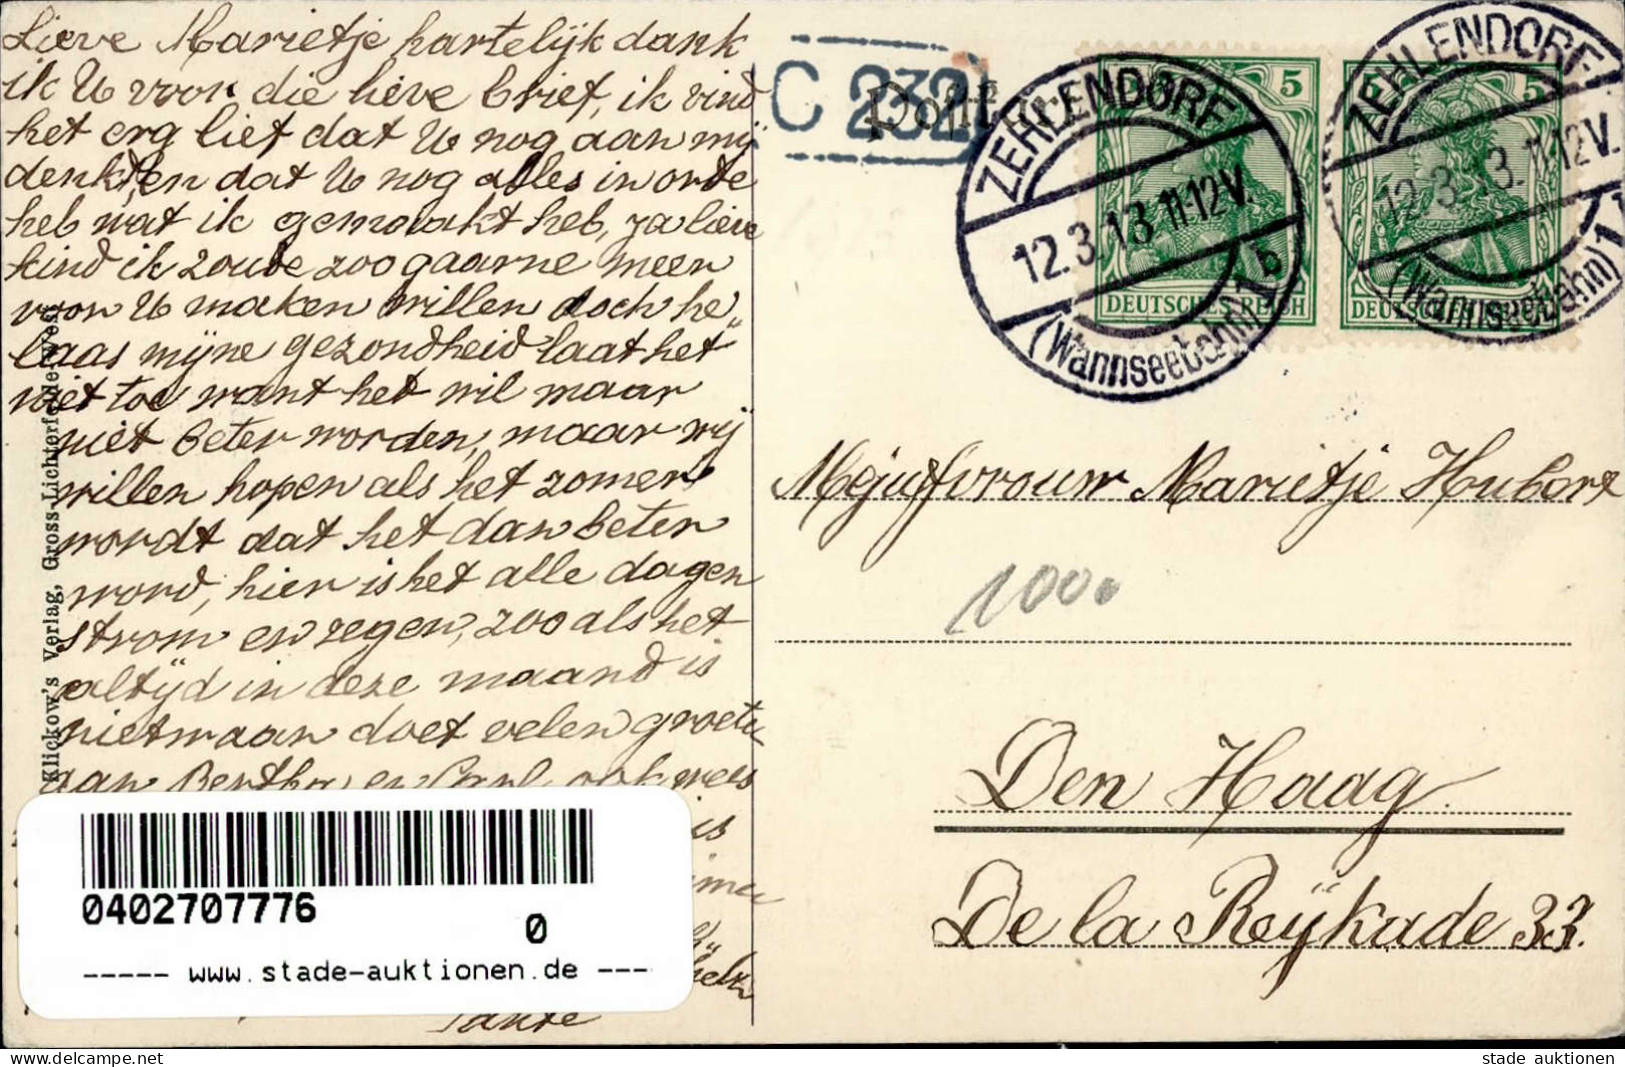 Lieve Marietje hartelijk dank
ik U voor die lieve brief, ik vind
het erg lief dat U nog aan mij
denkt, en dat U nog alles in orde
heb wat ik gemaakt heb, ja lieve
kind ik zoude zoo gaarne meer
voor U maken willen doch he„
laas mijne gezondheid laat het
niet toe want het wil maar
niet beter worden, maar wij
willen hopen als het zomer
wordt dat het dan beter
word, hier is het alle dagen
strom en regen, zooals het
altijd in deze maand is
nietwaar doet velen groeten
aan Bertha en Carl ook wees
is
Tante
Klickow's Verlag, Gross-Lichterfelde-West
C 232
Post
ZEHLENDORF
12.3.13.11-12V.
(Wannseebahn) 1 b
ZEHLENDORF
12.3. 3.11-12V.
(Wannseebahn) 1
5
DEUTSCHES REICH
5
DEUTSCHES REICH
Mejufvrouw Marietje Hubert
100.
Den Haag
De la Reÿkade 33.
0402707776
0
----- www.stade-auktionen.de ---
stade auktionen